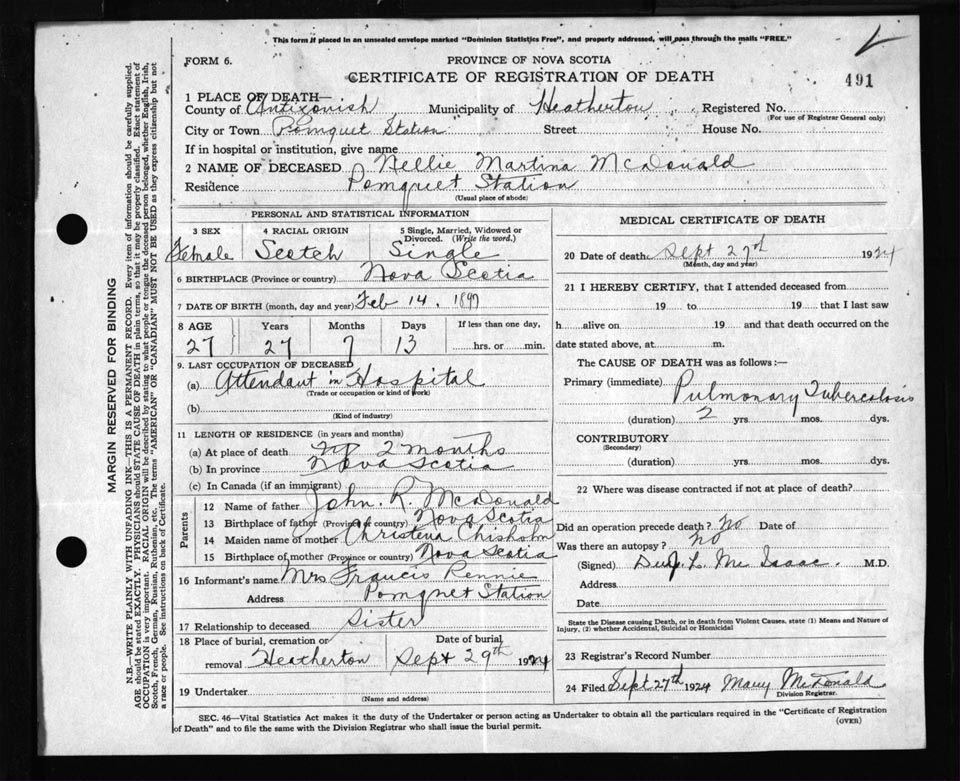 This form if placed in an unsealed envelope marked "Dominion Statistics Free", and properly addressed, will pass through the mails "FREE."
FORM 6.
PROVINCE OF NOVA SCOTIA
CERTIFICATE OF REGISTRATION OF DEATH
491
1 PLACE OF DEATH—
County of Antigonish Municipality of Heatherton Registered No.
(For use of Registrar General only)
City or Town Pomquet Station Street House No.
If in hospital or institution, give name
2 NAME OF DECEASED Nellie Martina McDonald
Residence Pomquet Station
(Usual place of abode)
PERSONAL AND STATISTICAL INFORMATION
3 SEX 4 RACIAL ORIGIN 5 Single, Married, Widowed or Divorced. (Write the word.)
Female Scotch Single
6 BIRTHPLACE (Province or country) Nova Scotia
7 DATE OF BIRTH (month, day and year) Feb 14. 1897
8 AGE Years Months Days If less than one day,
27 27 7 13 hrs. or min.
9. LAST OCCUPATION OF DECEASED
(a) Attendant in Hospital
(Trade or occupation or kind of work)
(b)
(Kind of industry)
11 LENGTH OF RESIDENCE (in years and months)
(a) At place of death 2 months
(b) In province Nova Scotia
(c) In Canada (if an immigrant)
Parents
12 Name of father John. R. McDonald
13 Birthplace of father (Province or country) Nova Scotia
14 Maiden name of mother Christena Chisholm
15 Birthplace of mother (Province or country) Nova Scotia
16 Informant's name Mrs Francis Rennie
Address Pomquet Station
17 Relationship to deceased Sister
18 Place of burial, cremation or removal Heatherton Date of burial Sept 29th 1924
19 Undertaker
(Name and address)
MEDICAL CERTIFICATE OF DEATH
20 Date of death Sept 27rd 1924
(Month, day and year)
21 I HEREBY CERTIFY, that I attended deceased from
19 to 19 that I last saw
h alive on 19 and that death occurred on the
date stated above, at m.
The CAUSE OF DEATH was as follows:—
Primary (immediate) Pulmonary Tuberculosis
(duration) 2 yrs. mos. dys.
CONTRIBUTORY
(Secondary)
(duration) yrs. mos. dys.
22 Where was disease contracted if not at place of death?
Did an operation precede death? No Date of
Was there an autopsy? No
(Signed) L. Mc Isaac. M.D.
Address
Date
State the Disease causing Death, or in death from Violent Causes, state (1) Means and Nature of
Injury, (2) whether Accidental, Suicidal or Homicidal
23 Registrar's Record Number
24 Filed Sept 27th 1924 Mary McDonald
Division Registrar.
SEC. 46—Vital Statistics Act makes it the duty of the Undertaker or person acting as Undertaker to obtain all the particulars required in the "Certificate of Registration
of Death" and to file the same with the Division Registrar who shall issue the burial permit.
(OVER)
MARGIN RESERVED FOR BINDING
N.B.—WRITE PLAINLY WITH UNFADING INK—THIS IS A PERMANENT RECORD. Every item of information should be carefully supplied.
AGE should be stated EXACTLY. PHYSICIANS should STATE CAUSE OF DEATH in plain terms, so that it may be properly classified. Exact statement of
OCCUPATION is very important. RACIAL ORIGIN will be described by stating to what people or tongue the deceased person belonged, whether English, Irish,
Scotch, French, German, Russian, Ruthenian, etc. The terms "AMERICAN" OR "CANADIAN" MUST NOT BE USED as they express citizenship but not
a race or people. See instructions on back of Certificate.